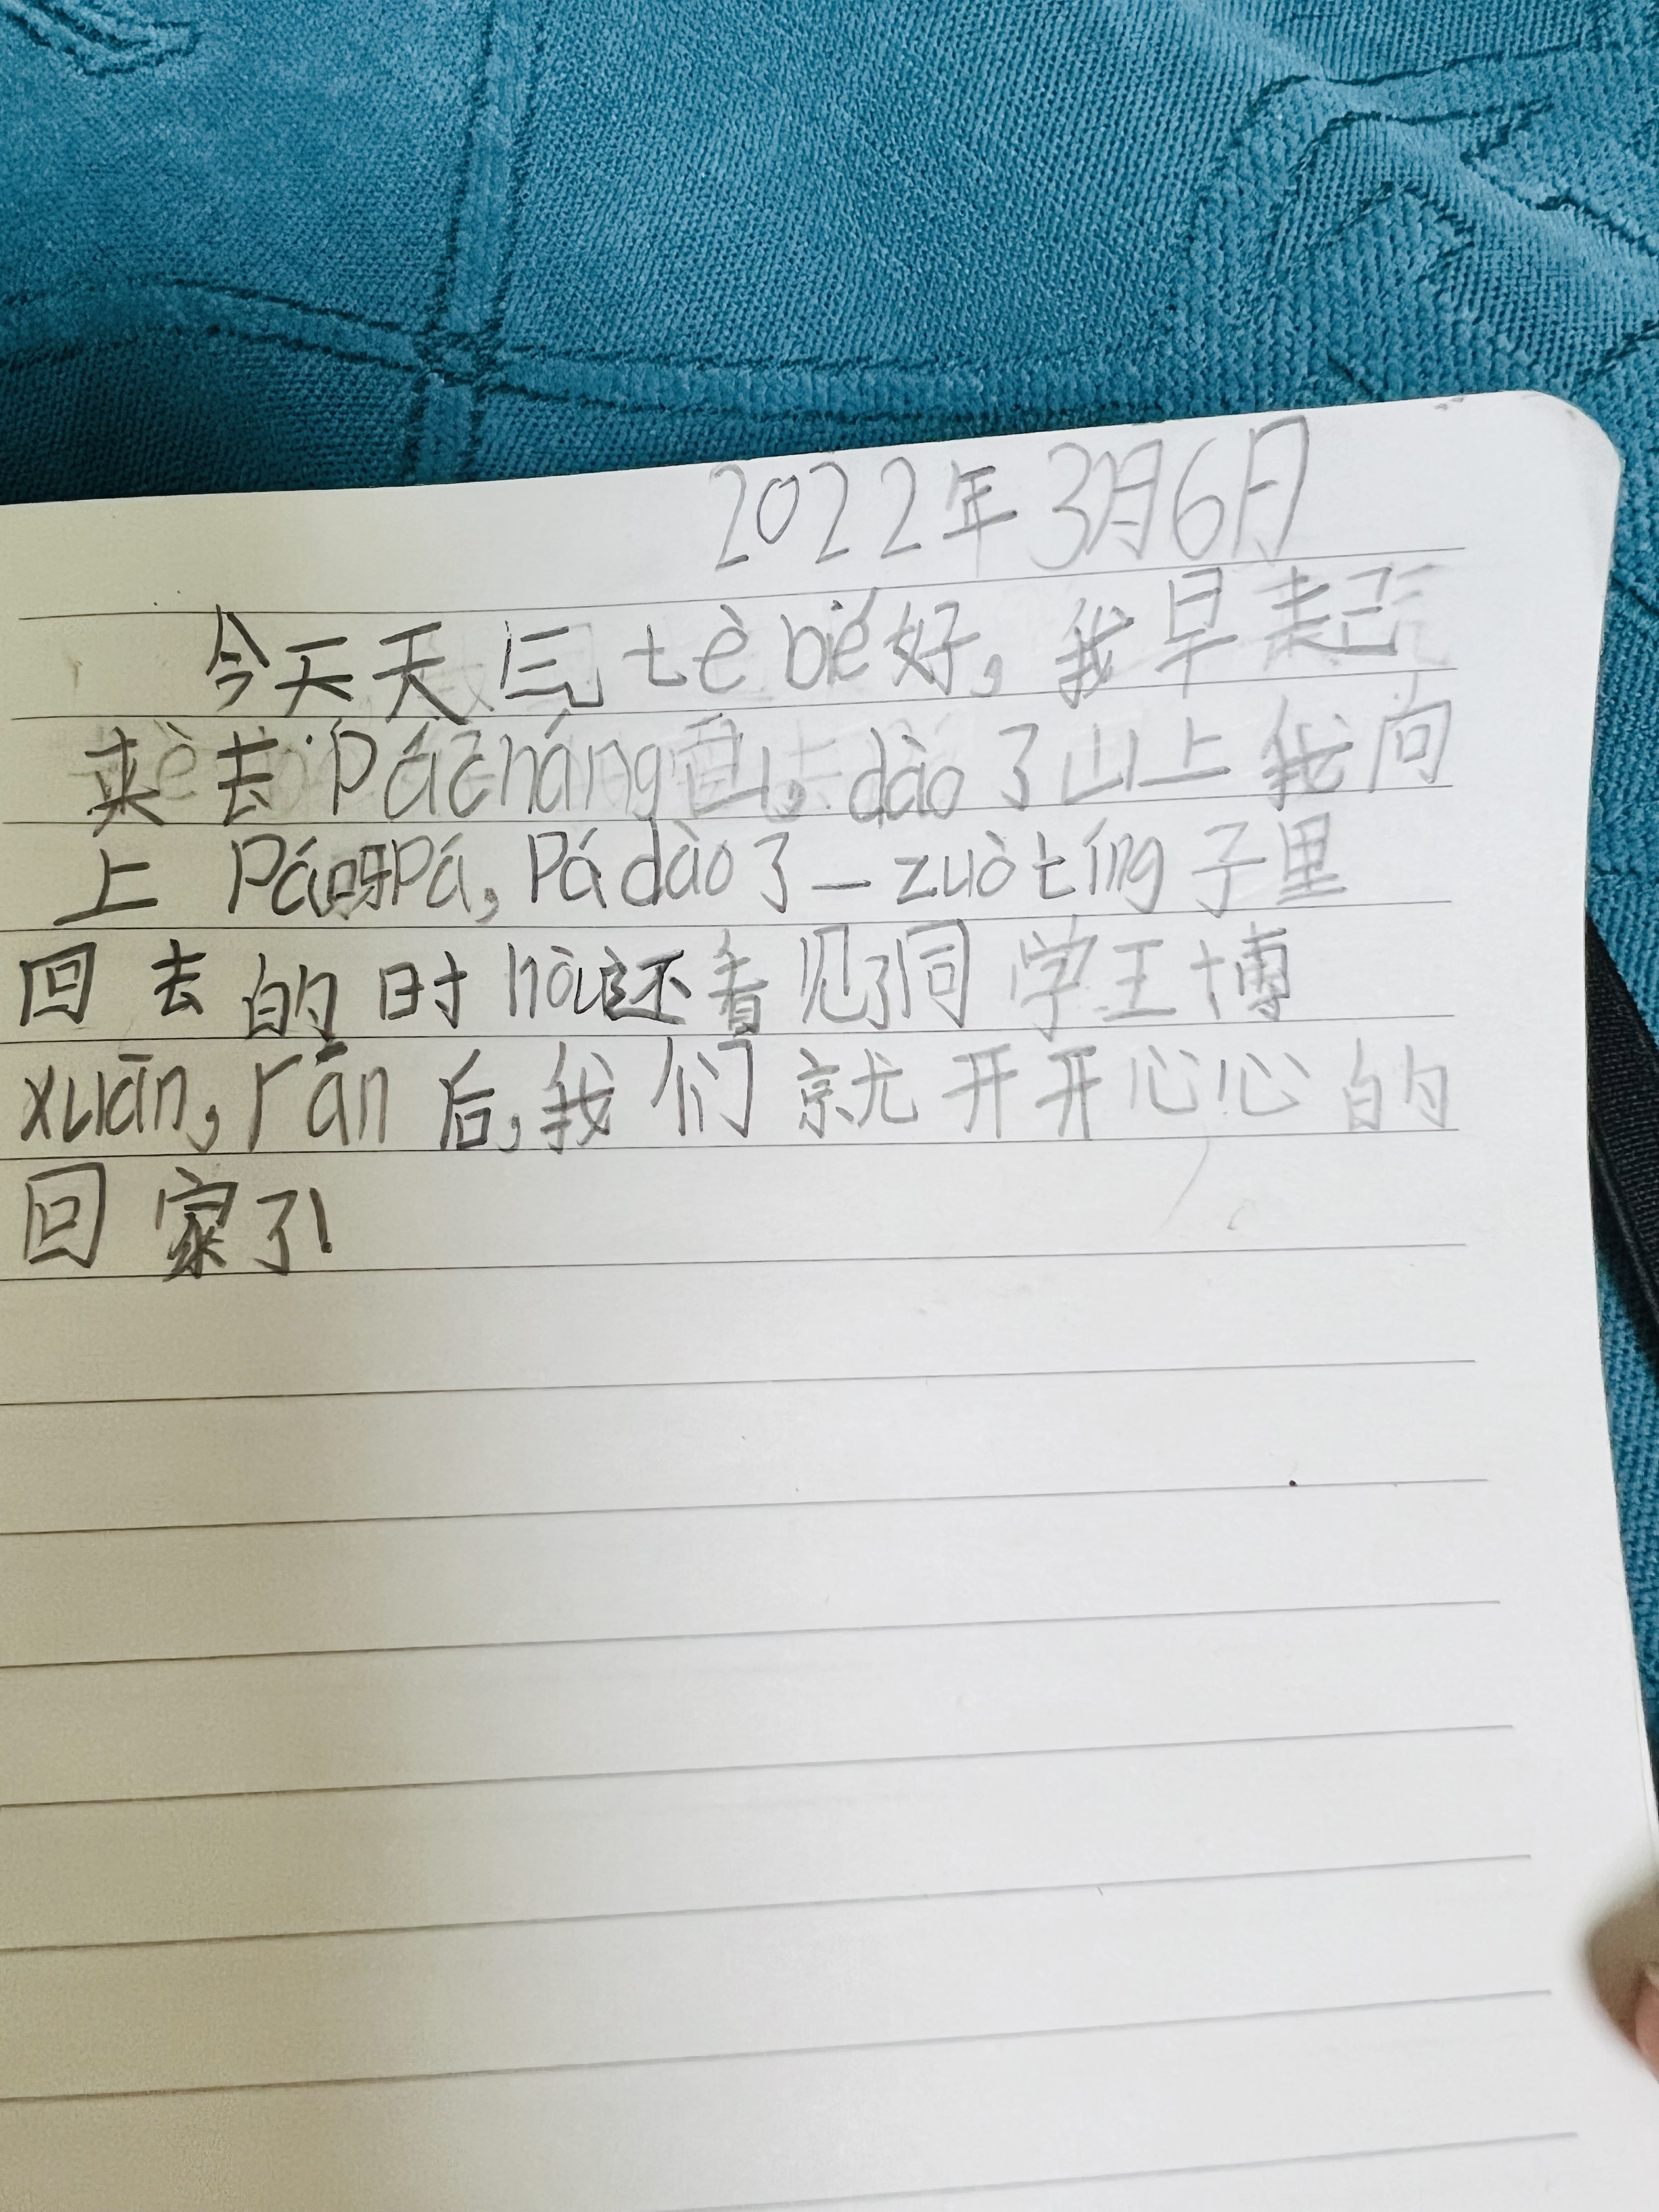 2022年3月6日
今天天气tè bié好,我早起
来去Pácháng山,dào了山上我向
上Pá呀Pá,Pádào了一zuòtíng子里
回去的时hòu还看见了同学王博
xuān,rán后,我们就开开心心的
回家了!